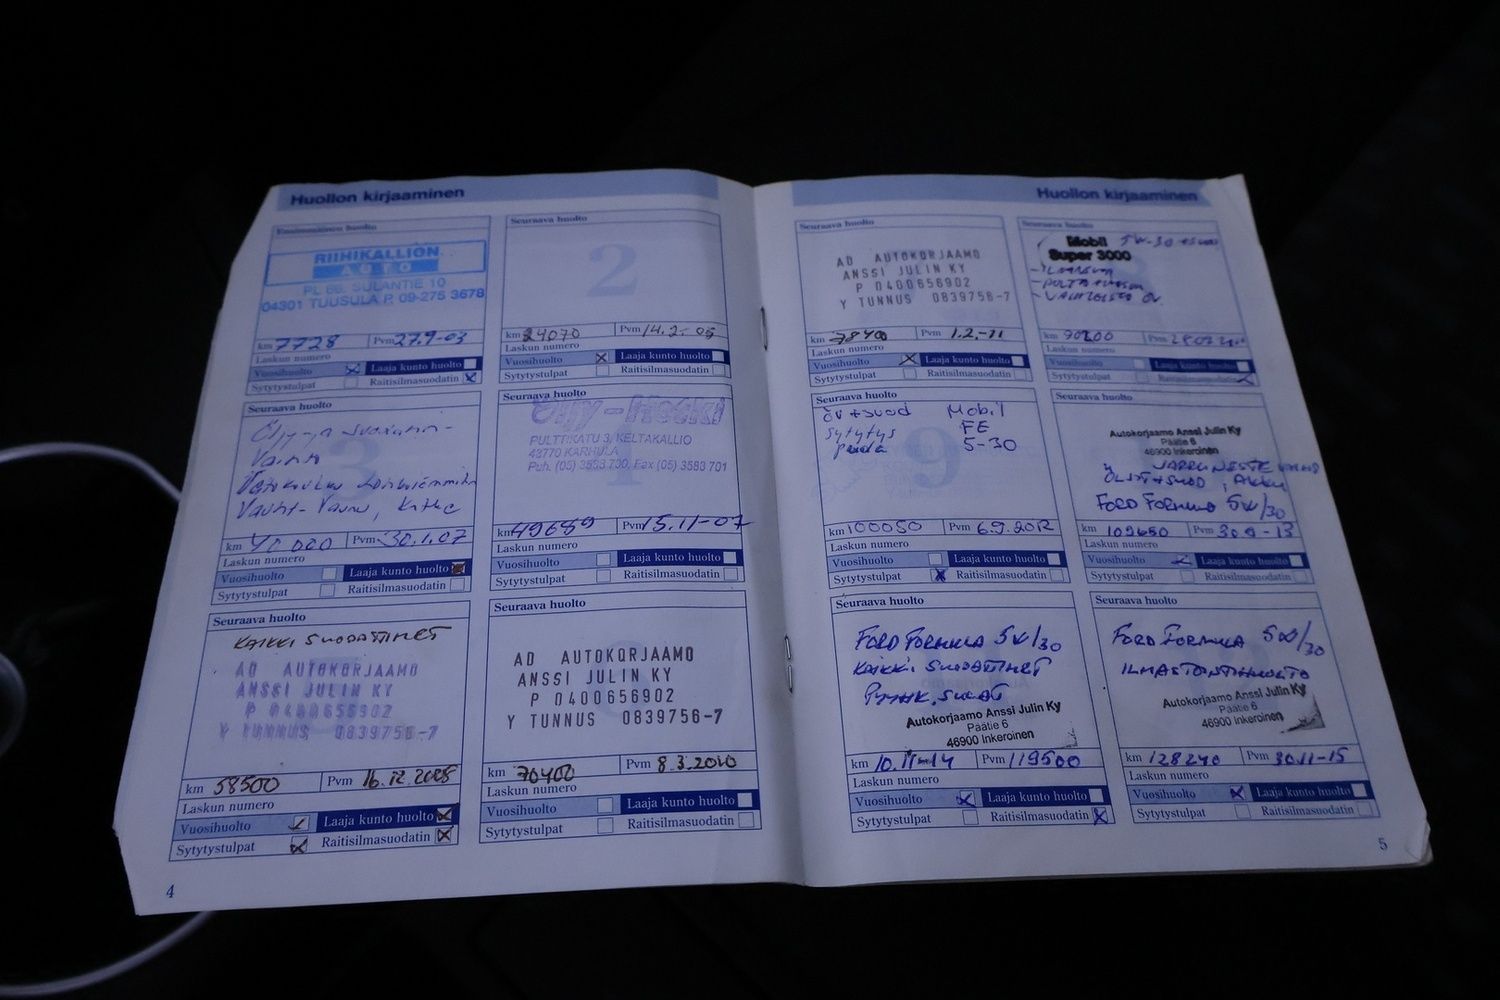 Huollon kirjaaminen
Ensimmäinen huolto
RIIHIKALLION
AUTO
PL 66, SULANTIE 10
04301 TUUSULA P. 09-275 3678
km 7728 Pvm 27.9-03
Laskun numero
Vuosihuolto Laaja kunto huolto
Sytytystulpat Raitisilmasuodatin
Seuraava huolto
2
km 24070 Pvm 14.2.-05
Laskun numero
Vuosihuolto Laaja kunto huolto
Sytytystulpat Raitisilmasuodatin
Seuraava huolto
3
km 40 000 Pvm 30.1.07
Laskun numero
Vuosihuolto Laaja kunto huolto
Sytytystulpat Raitisilmasuodatin
Seuraava huolto
Öljy-Hetki
PULTTIKATU 3, KELTAKALLIO
48770 KARHULA
Puh. (05) 3583 730, Fax (05) 3583 701
km 49689 Pvm 15.11-07
Laskun numero
Vuosihuolto Laaja kunto huolto
Sytytystulpat Raitisilmasuodatin
Seuraava huolto
KAIKKI SUODATTIMET
AD AUTOKORJAAMO
ANSSI JULIN KY
P 0400656902
Y TUNNUS 0839756-7
km 58500 Pvm 16.12.2008
Laskun numero
Vuosihuolto Laaja kunto huolto
Sytytystulpat Raitisilmasuodatin
Seuraava huolto
AD AUTOKORJAAMO
ANSSI JULIN KY
P 0400656902
Y TUNNUS 0839756-7
km 70400 Pvm 8.3.2010
Laskun numero
Vuosihuolto Laaja kunto huolto
Sytytystulpat Raitisilmasuodatin
4
Huollon kirjaaminen
Seuraava huolto
AD AUTOKORJAAMO
ANSSI JULIN KY
P 0400656902
Y TUNNUS 0839756-7
km 78400 Pvm 1.2.-11
Laskun numero
Vuosihuolto Laaja kunto huolto
Sytytystulpat Raitisilmasuodatin
Seuraava huolto
Mobil 5W-30
Super 3000
km 90200 Pvm
Laskun numero
Vuosihuolto Laaja kunto huolto
Raitisilmasuodatin
Seuraava huolto
öv+suod Mobil
sytytys FE
5-30
9
km 100050 Pvm 6.9.2012
Laskun numero
Vuosihuolto Laaja kunto huolto
Sytytystulpat Raitisilmasuodatin
Seuraava huolto
Autokorjaamo Anssi Julin Ky
Päätie 6
46900 Inkeroinen
JARRUNESTE
ÖLJYT+SUOD, AKKU
FORD FORMULA 5W/30
km 109650 Pvm 30.9-13
Laskun numero
Vuosihuolto Laaja kunto huolto
Sytytystulpat Raitisilmasuodatin
Seuraava huolto
FORD FORMULA 5W/30
KAIKKI SUODATTIMET
Autokorjaamo Anssi Julin Ky
Päätie 6
46900 Inkeroinen
km 10.11-14 Pvm 119500
Laskun numero
Vuosihuolto Laaja kunto huolto
Sytytystulpat Raitisilmasuodatin
Seuraava huolto
FORD FORMULA 5W/30
ILMASTOINTIHUOLTO
Autokorjaamo Anssi Julin Ky
Päätie 6
46900 Inkeroinen
km 128240 Pvm 30.11-15
Laskun numero
Vuosihuolto Laaja kunto huolto
Sytytystulpat Raitisilmasuodatin
5